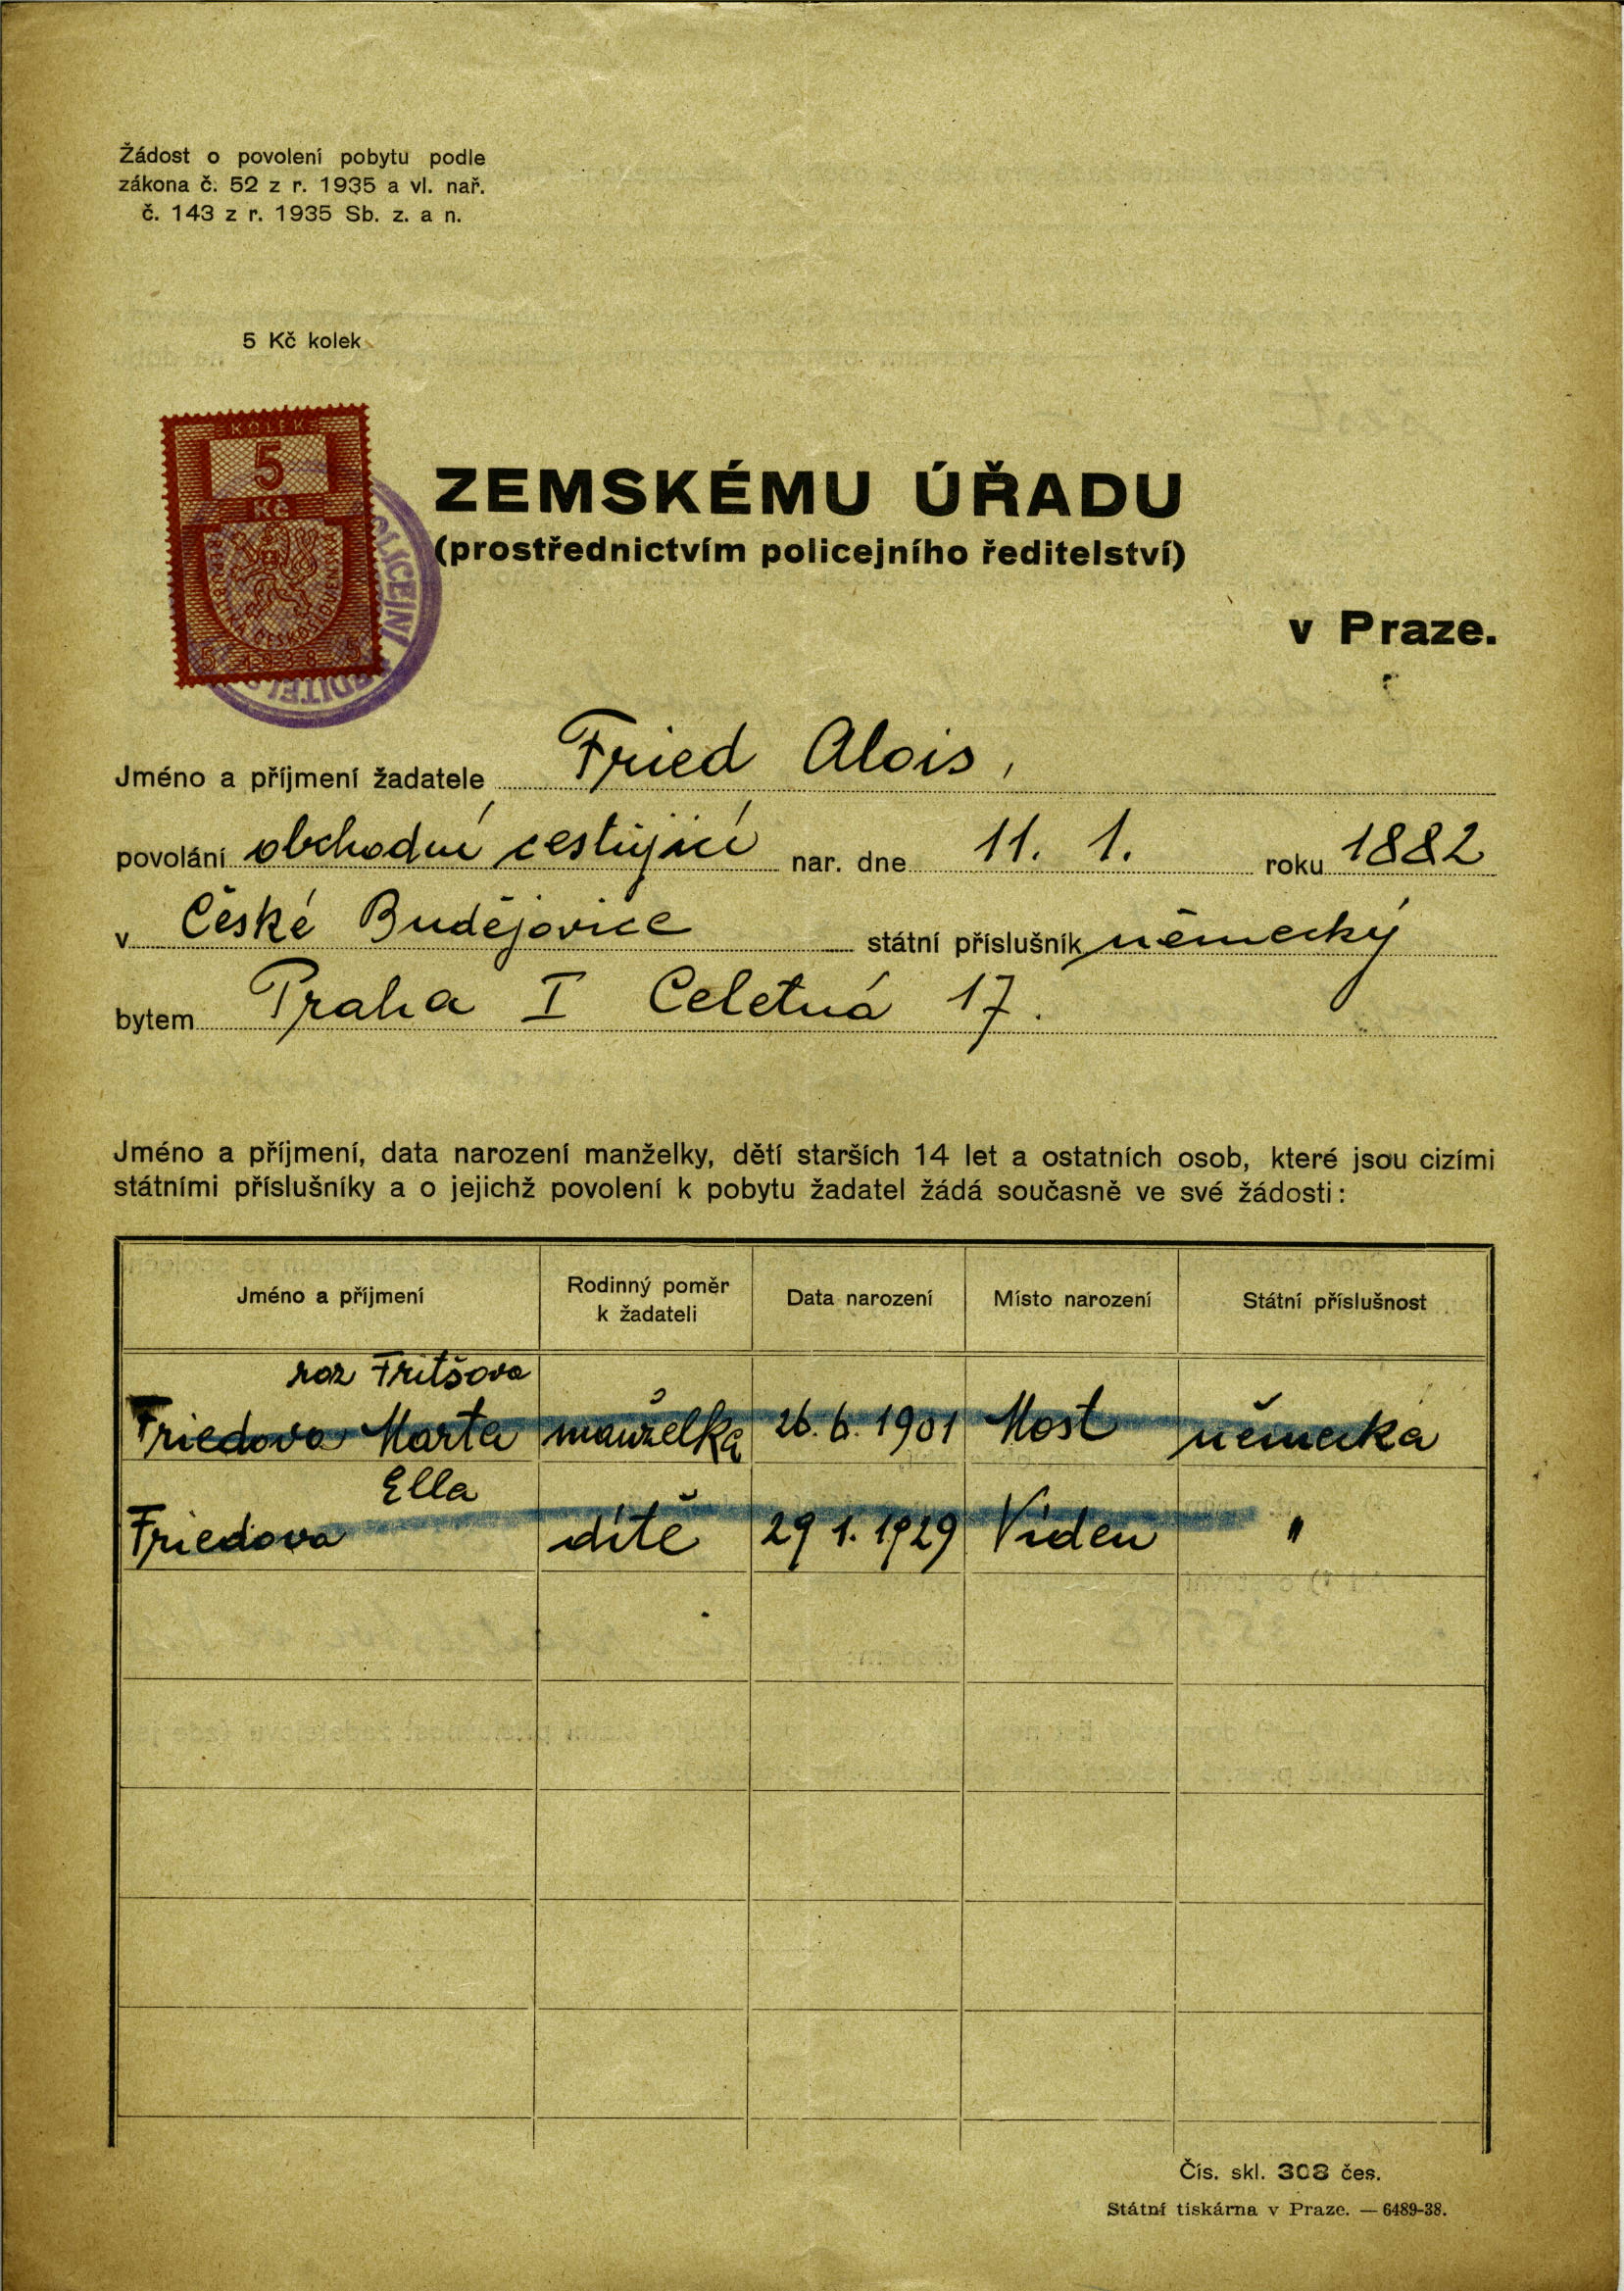 Žádost o povolení pobytu podle
zákona č. 52 z r. 1935 a vl. nař.
č. 143 z r. 1935 Sb. z. a n.
5 Kč kolek
KOLEK
5
Kč
REPUBLIKA ČESKOSLOVENSKÁ
5 1938 5
POLICEJNÍ ŘEDITELS
ZEMSKÉMU ÚŘADU
(prostřednictvím policejního ředitelství)
v Praze.
Jméno a příjmení žadatele Fried Alois,
povolání obchodní cestující nar. dne 11. 1. roku 1882
v České Budějovice státní příslušník německý
bytem Praha I Celetná 17.
Jméno a příjmení, data narození manželky, dětí starších 14 let a ostatních osob, které jsou cizími
státními příslušníky a o jejichž povolení k pobytu žadatel žádá současně ve své žádosti:
Jméno a příjmení Rodinný poměr k žadateli Data narození Místo narození Státní příslušnost
roz Fritšova
Friedova Marta manželka 26. 6. 1901 Most německá
Ella
Friedova dítě 29 1. 1929 Víden "
Čís. skl. 308 čes.
Státní tiskárna v Praze. — 6489-38.